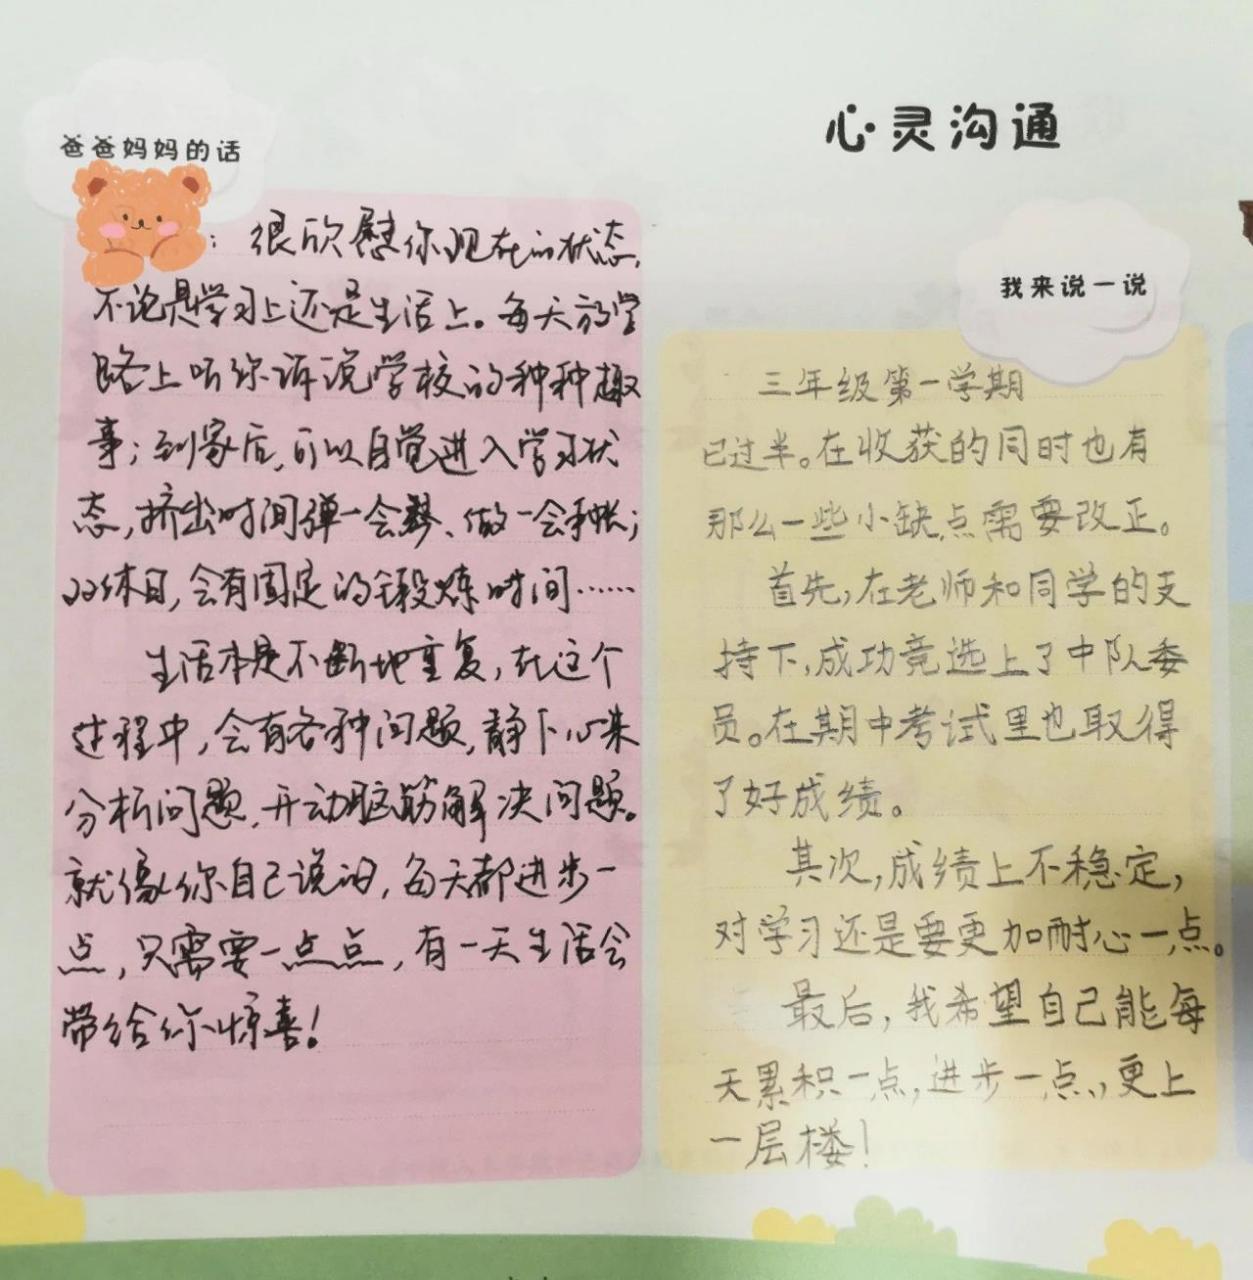 心灵沟通
爸爸妈妈的话
：很欣慰你现在的状态，
不论是学习上还是生活上。每天放学
路上听你诉说学校的种种趣
事；到家后，可以自觉进入学习状
态，挤出时间弹一会琴、做一会手工；
双休日，会有固定的锻炼时间……
生活本是不断地重复，在这个
过程中，会有各种问题，静下心来
分析问题，开动脑筋解决问题。
就像你自己说的，每天都进步一
点，只需要一点点，有一天生活会
带给你惊喜！
我来说一说
三年级第一学期
已过半。在收获的同时也有
那么一些小缺点需要改正。
首先，在老师和同学的支
持下，成功竞选上了中队委
员。在期中考试里也取得
了好成绩。
其次，成绩上不稳定，
对学习还是要更加耐心一点。
最后，我希望自己能每
天累积一点，进步一点，更上
一层楼！